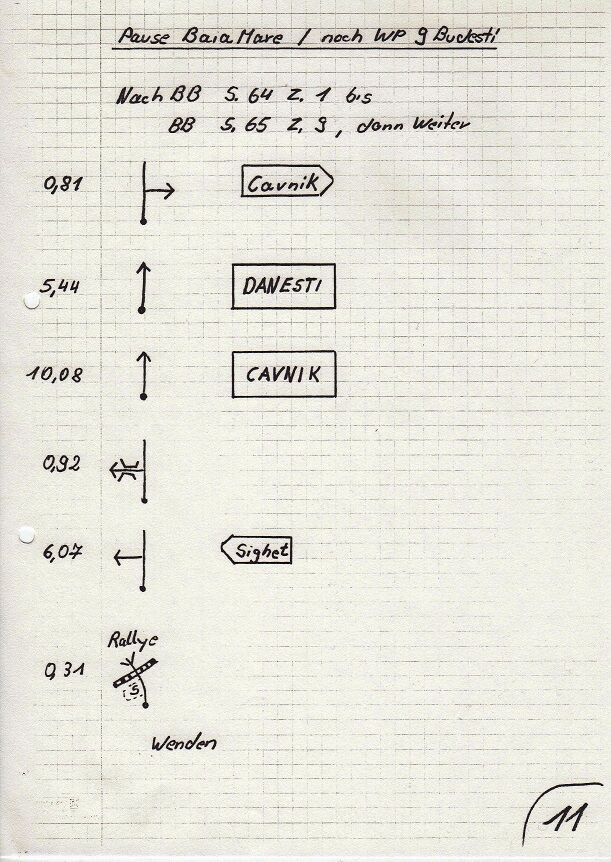 Pause Baia Mare / nach WP 9 Budesti
Nach BB S. 64 Z. 1 bis
BB S. 65 Z. 9, dann Weiter
0,81 Cavnik
5,44 DANESTI
10,08 CAVNIK
0,92
6,07 Sighet
Rallye
0,31 S
Wenden
11